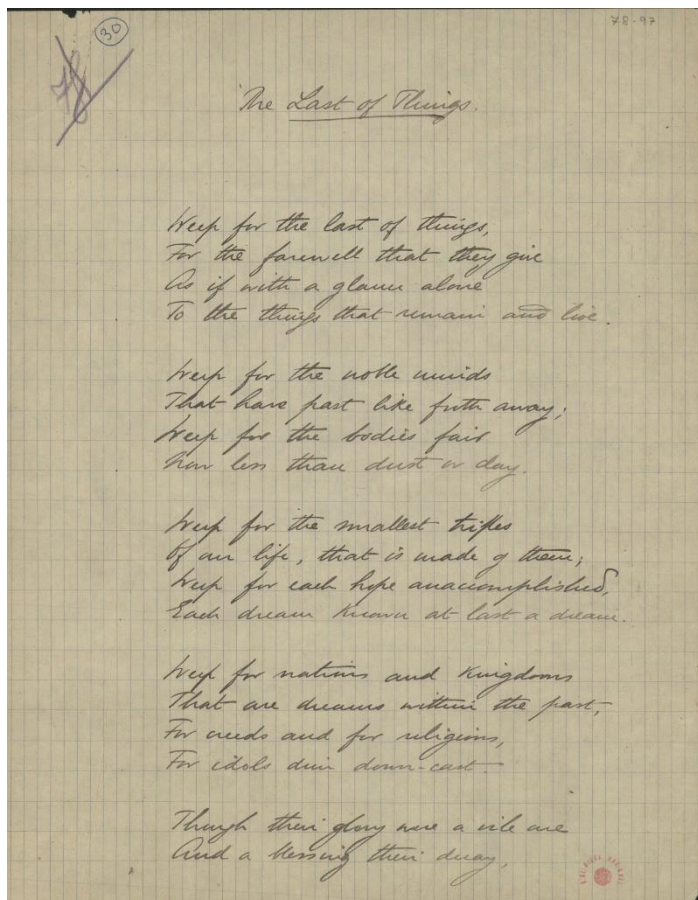 30
78-97
78
The Last of Things.
Weep for the last of things,
For the farewell that they give
As if with a glance alone
To the things that remain and live.
Weep for the noble minds
That have past like froth away;
Weep for the bodies fair
Now less than dust or clay.
Weep for the smallest trifles
Of our life, that is made of them;
Weep for each hope unaccomplished,
Each dream known at last a dream.
Weep for nations and kingdoms
That are dreams within the past,
For creeds and for religions,
For idols dim down-cast.
Though their glory were a vile one
And a blessing their decay,